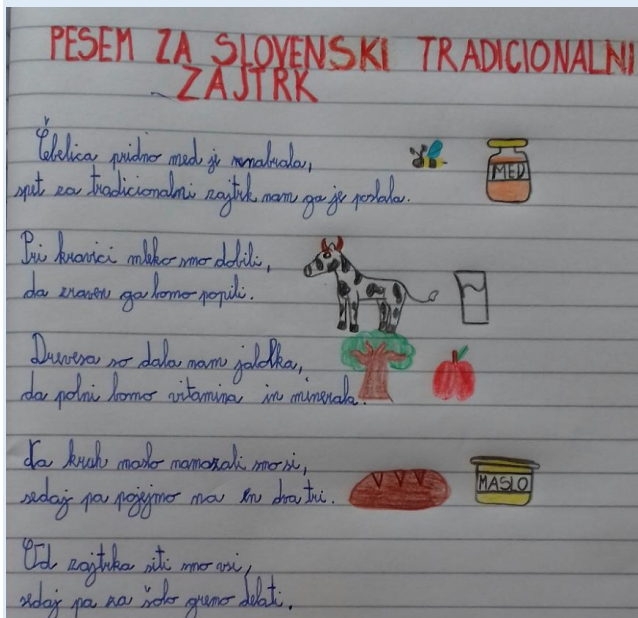 PESEM ZA SLOVENSKI TRADICIONALNI
ZAJTRK
Čebelica pridno med je nenabrala,
spet za tradicionalni zajtrk nam ga je poslala.
MED
Pri kravici mleko smo dobili,
da zraven ga bomo popili.
Drevesa so dala nam jabolka,
da polni bomo vitamina in minerala.
Na kruh maslo namazali smo si,
sedaj pa pojejmo na en dva tri.
MASLO
Od zajtrka siti smo vsi,
sedaj pa za šolo gremo delati.